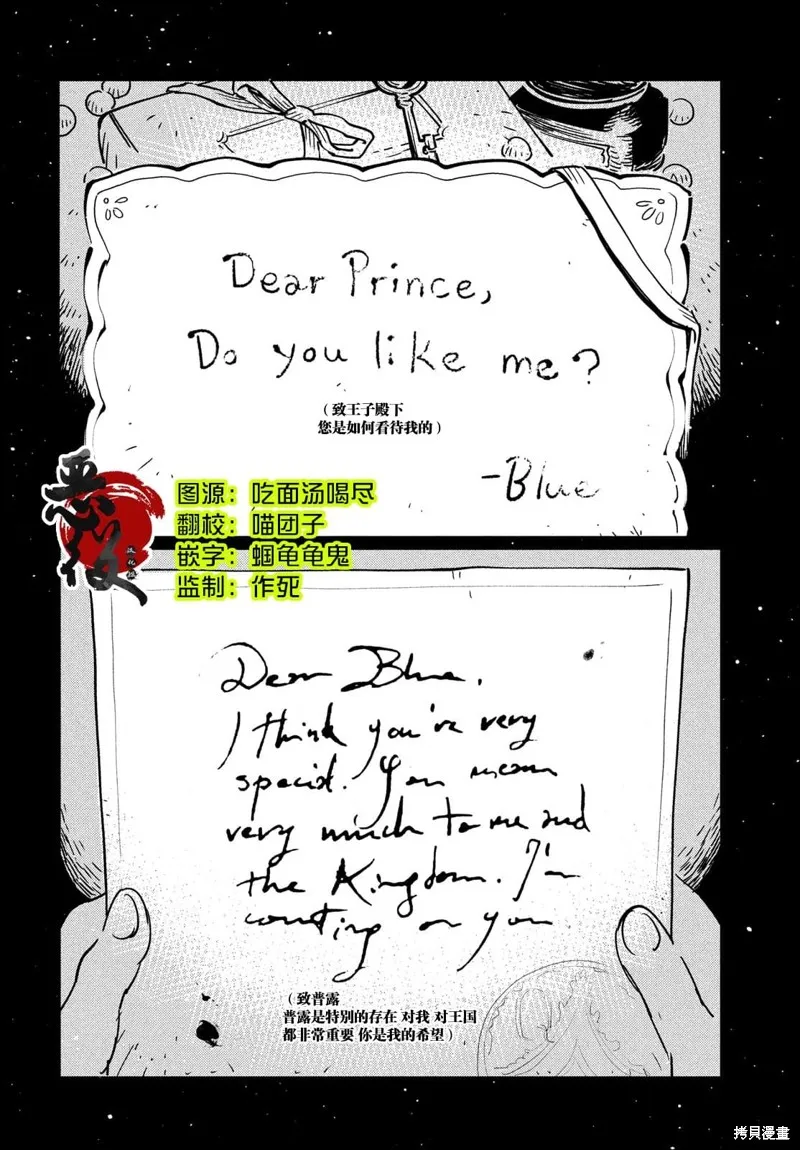 Dear Prince,
Do you like me?
（致王子殿下
您是如何看待我的）
-Blue
恶役
汉化组
图源：吃面汤喝尽
翻校：喵团子
嵌字：蝈龟龟鬼
监制：作死
Dear Blue.
I think you're very
special. You mean
very much to me and
the Kingdom. I'm
counting on you
（致普露
普露是特别的存在 对我 对王国
都非常重要 你是我的希望）
拷貝漫畫